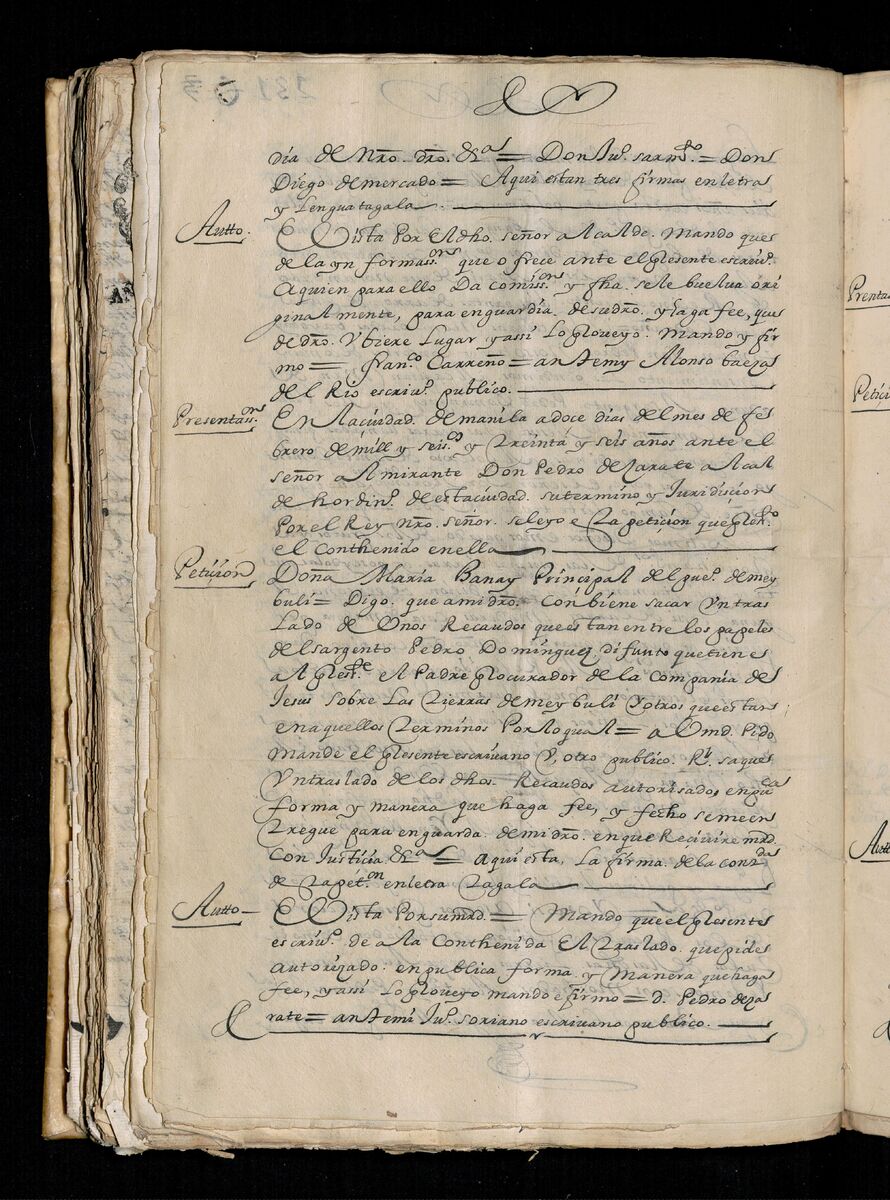 dia de Nro. dro. &a = Don Ju.º sarm.to = Don
Diego de mercado = Aqui estan tres firmas en letra
y Lengua tagala
Autto.
Vista Por El dho. señor alcalde. Mando que
de la ynformass.on que ofrece ante el presente escriu.º
Aquien para ello Da comiss.on y fha. se le buelua ori
ginalmente, para en guardia. de su dro. y haga fee, que
de dro. Vbiere Lugar y assi Lo proueyo. Mando y fir
mo = fran.co Carreño = antemy Alonso baeza
del Rio escriu.º publico.
Presentass.on
En la ciudad. de manila a doce dias del mes de fe
brero de mill y seis.os y treinta y seis años ante el
señor almirante Don Pedro de Zarate alcal
de hordin.º de esta ciudad. su termino y Juridision
Por el Rey Nro. señor. se leyo esta petiçion que pres.to
el Conthenido en ella
Petiçion
Doña Maria Banay Principal del pue.º de mey
buli = Digo. que a mi dro. conbiene sacar Vn tras
Lado de Vnos Recaudos que estan entre los papeles
del sargento Pedro Dominguez difunto que tiene
al pres.te el Padre procurador de la Compania de
Jesus sobre Las tierras de mey buli y otros que estan
en aquellos terminos Por lo qual = a Vmd. Pido
Mande el presente escriuano V, otro publico. R.l saque
Vn traslado de los dhos. Recaudos autorisados en pu.ca
forma y manera que haga fee, y fecho se me en
tregue para en guarda. de mi dro. en que Reciuire mrd.
Con Justicia &a = Aqui esta, La firma. de la cont.da
de esta pet.on en letra tagala
Autto
Vista Por su mrd. = Mando que el presente
escriu.º de a la Conthenida El traslado. que pide
autorizado: en publica forma. y Manera que haga
fee, y assi Lo proueyo mando e firmo = D. Pedro de Za
rate = antemi Ju.º soriano escriuano publico.